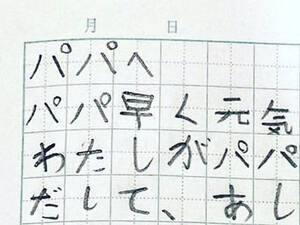 月 日
パパへ
パパ早く元気
わたしがパパ
だして、あし